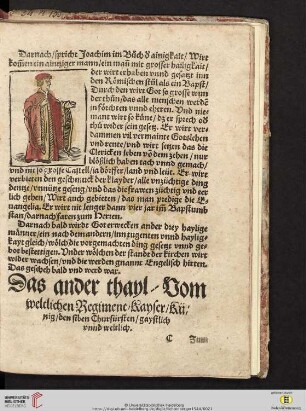 Darnach/spricht Joachim im Bůch d' ainigkait/Wirt
kom̄en ein ainziger mann/ein man̄ mit grosser hailigkait/
der wirt erhaben vnnd gesatzt inn
den Römischen stůl als ein Bapst/
Durch den wirt Got so grosse wun
der thůn/das alle menschen werdē
in förchten vnd eheren. Vnd nie-
mant wirt so kůne/dz er sprech od'
thů wider sein gesetz. Er wirt ver-
dammen vil vermainte Gotslehen
vnd rente/vnd wirt setzen das die
Clericken leben vō dem zehen/nur
blößlich haben tach vnnd gemach/
vnd nit so grosse Castell/ia dörffer/land vnd leüt. Er wirt
verbieten den geschmuck der klayder/alle vnzüchtige ding
dentze/vnnütze geseng/vnd das die frawen züchtig vnd er-
lich gehen/Wirt auch gebieten/das man predige die E-
uangelia. Er wirt nit lenger dann vier jar im Bapstumb
stan/darnach faren zum Herren.
Darnach bald wirdt Got erwecken ander drey haylige
männer/ein nach dem andern/inn tugenten vnnd haylig-
kayt gleich/wölch die vorgemachten ding gesetz vnnd ge-
bot bestettigen. Vnder wölchen der stande der kirchen wirt
wider wachsen/vnd die werden gnannt Engelisch hirten.
Das gescheh bald vnd werd war.
Das ander thayl/Vom
weltlichen Regiment/Kayser/Kü/
nig/den siben Churfürsten/gaystlich
vnnd weltlich.
C Zum